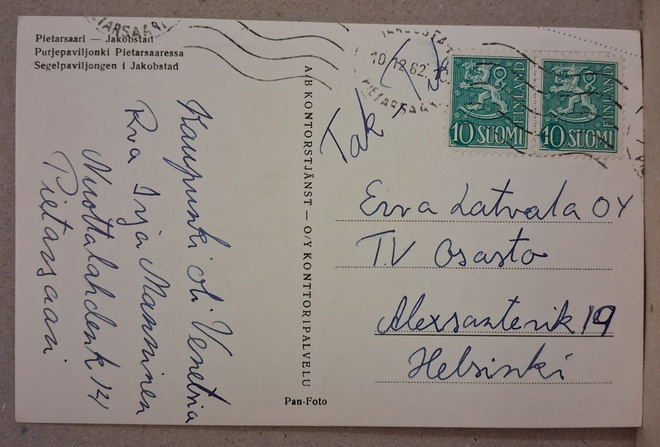 Pietarsaari — Jakobstad
Purjepaviljonki Pietarsaaressa
Segelpaviljongen i Jakobstad
Kaupunki oli Venetsia
Rva Irja Manninen
Nuottalahdenk 12
Pietarsaari
A/B KONTORSTJÄNST — O/Y KONTTORIPALVELU
Pan-Foto
JAKOBSTAD
10.12.62
PIETARSAARI
PIETARSAARI
10 SUOMI
FINLAND
10 SUOMI
FINLAND
Erva Latvala OY
T.V Osasto
Alexsanterik 19
Helsinki